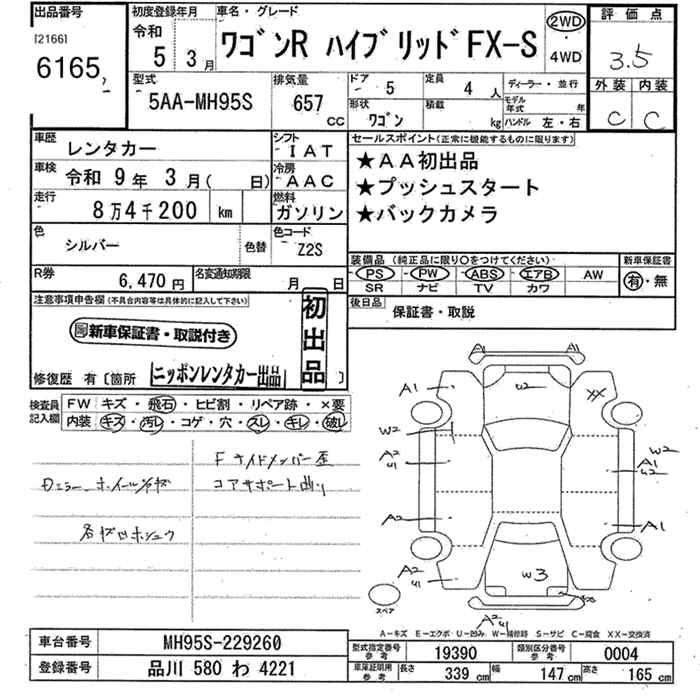 出品番号
[2166]
6165
初度登録年月
令和
5 3月
車名・グレード
ワゴンR ハイブリッドFX-S
2WD
・
4WD
評価点
3.5
外装 内装
C C
型式
5AA-MH95S
排気量
657
CC
ドア
5
定員
4 人
ディーラー・並行
形状
ワゴン
積載
kg
モデル
年式 年
ハンドル 左・右
車歴
レンタカー
シフト
IAT
車検
令和 9年 3月( 日)
冷房
AAC
走行
8万4千200 km
燃料
ガソリン
色
シルバー
色替
色コード
Z2S
R券
6,470円
名変通知期限
月 日
セールスポイント(正常に機能するものに限ります)
★AA初出品
★プッシュスタート
★バックカメラ
装備品(純正品に限り○をつけてください)
PS PW ABS エアB AW
SR ナビ TV カワ
新車保証書
有・無
後日品
保証書・取説
注意事項申告欄(不具合内容等は具体的に記入して下さい)
新車保証書・取説付き
初出品
修復歴 有〔箇所
ニッポンレンタカー出品
〕
検査員
記入欄
FW キズ・飛石・ヒビ割・リペア跡・×要
内装 キズ・汚レ・コゲ・穴・スレ・キレ・破レ
Fサイドメンバー歪
コアサポート曲り
A1
A1
A1
W2
XX
W2
A2
U1
W2
A1
U2
A2
A1
A2
U1
W3
XX
A2
U1
スペア
A-キズ E-エクボ U-凹み W-補修跡 S-サビ C-腐食 XX-交換済
車台番号
MH95S-229260
登録番号
品川 580 わ 4221
型式指定番号
参考
19390
類別区分番号
参考
0004
車庫証明用
参考
長さ
339 cm
幅
147 cm
高さ
165 cm